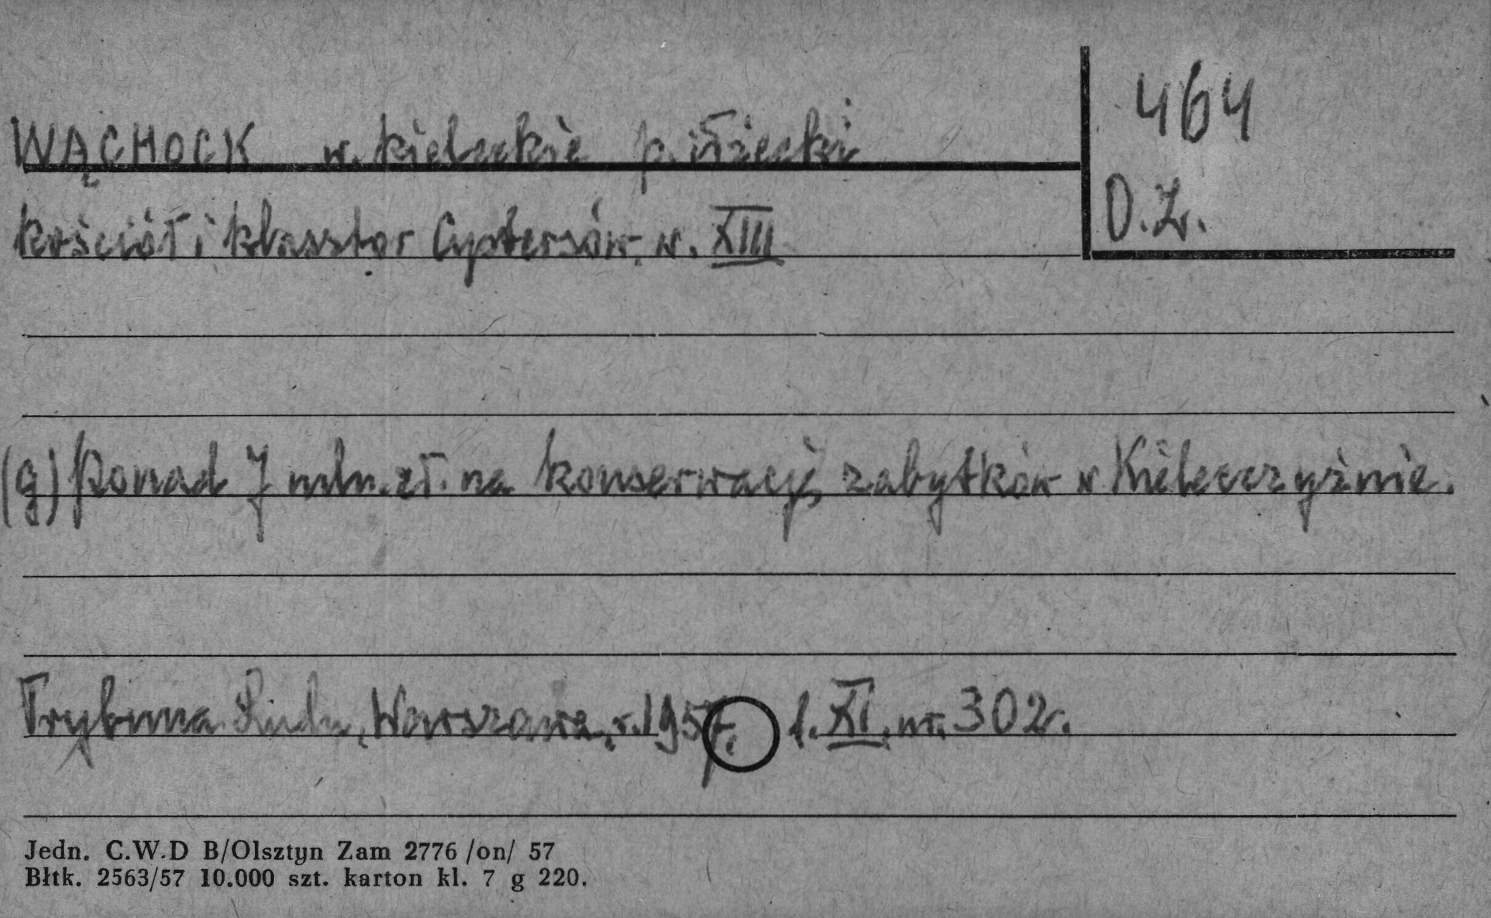 WĄCHOCK w. kieleckie p. iłżecki
464
D.Z.
kościół i klasztor Cystersów, w. XIII
(g) Ponad 7 mln. zł. na konserwację zabytków w Kielecczyźnie.
Trybuna Ludu, Warszawa, r. 1957. 1. XI. nr. 302.
Jedn. C.W.D B/Olsztyn Zam 2776 /on/ 57
Błtk. 2563/57 10.000 szt. karton kl. 7 g 220.